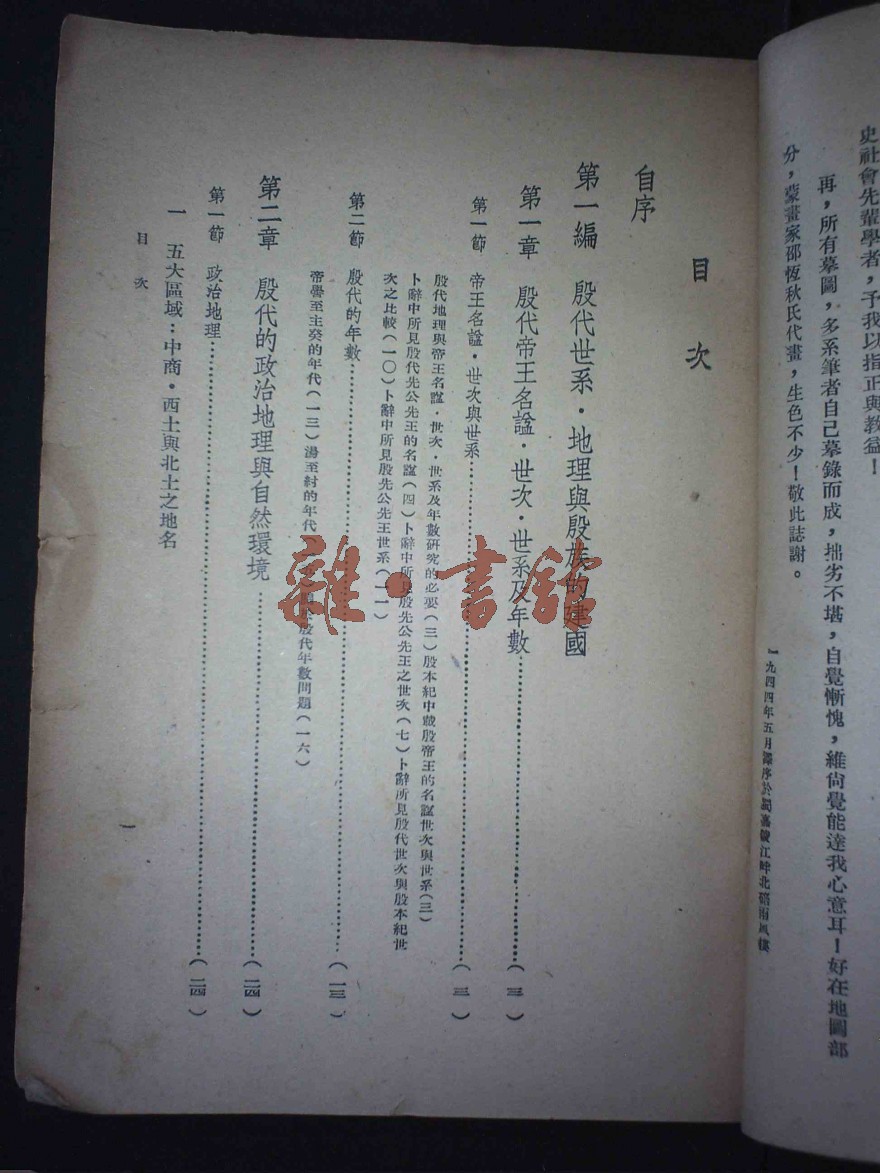 史社會先輩學者，予我以指正與教益！
再，所有摹圖，多系筆者自己摹錄而成，拙劣不堪，自覺慚愧，維尙覺能達我心意耳！好在地圖部
分，蒙畫家邵恆秋氏代畫，生色不少！敬此誌謝。
一九四四年五月澤序於蜀嘉陵江畔北碚雨風樓
目次
自序
第一編 殷代世系·地理與殷族的建國
第一章 殷代帝王名諡·世次·世系及年數……（三）
第一節 帝王名諡·世次與世系……（三）
殷代地理與帝王名諡·世次·世系及年數硏究的必要（三）殷本紀中載殷帝王的名諡世次與世系（三）
卜辭中所見殷代先公先王的名諡（四）卜辭中所見殷先公先王之世次（七）卜辭所見殷代世次與殷本紀世
次之比較（一〇）卜辭中所見殷先公先王世系（一一）
第二節 殷代的年數……（一三）
帝嚳至主癸的年代（一三）湯至紂的年代 殷代年數問題（一六）
第二章 殷代的政治地理與自然環境……（二四）
第一節 政治地理……（二四）
一 五大區域：中商·西土與北土之地名
目次
一
雜·書館